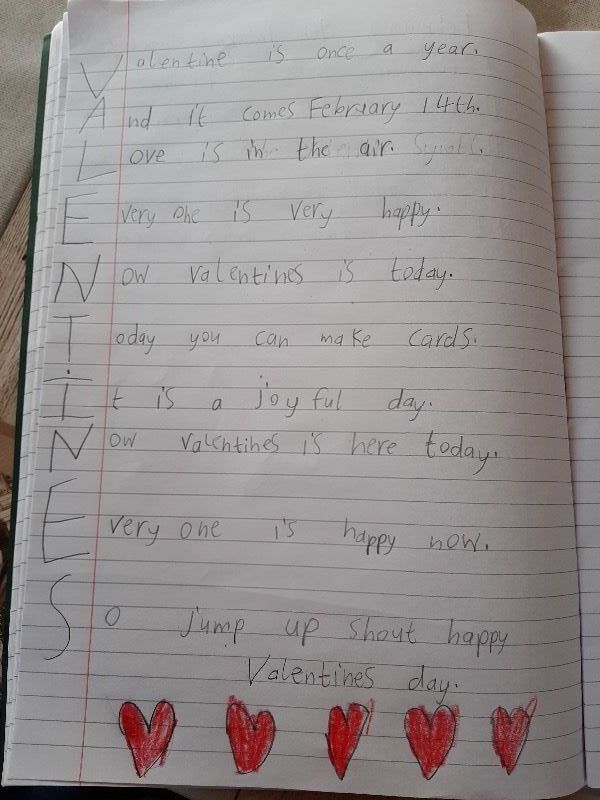 Valentine is once a year.
And it comes February 14th.
Love is in the air.
Every one is very happy.
Now valentines is today.
Today you can make cards.
It is a joyful day.
Now valentines is here today.
Every one is happy now.
So jump up shout happy
Valentines day.